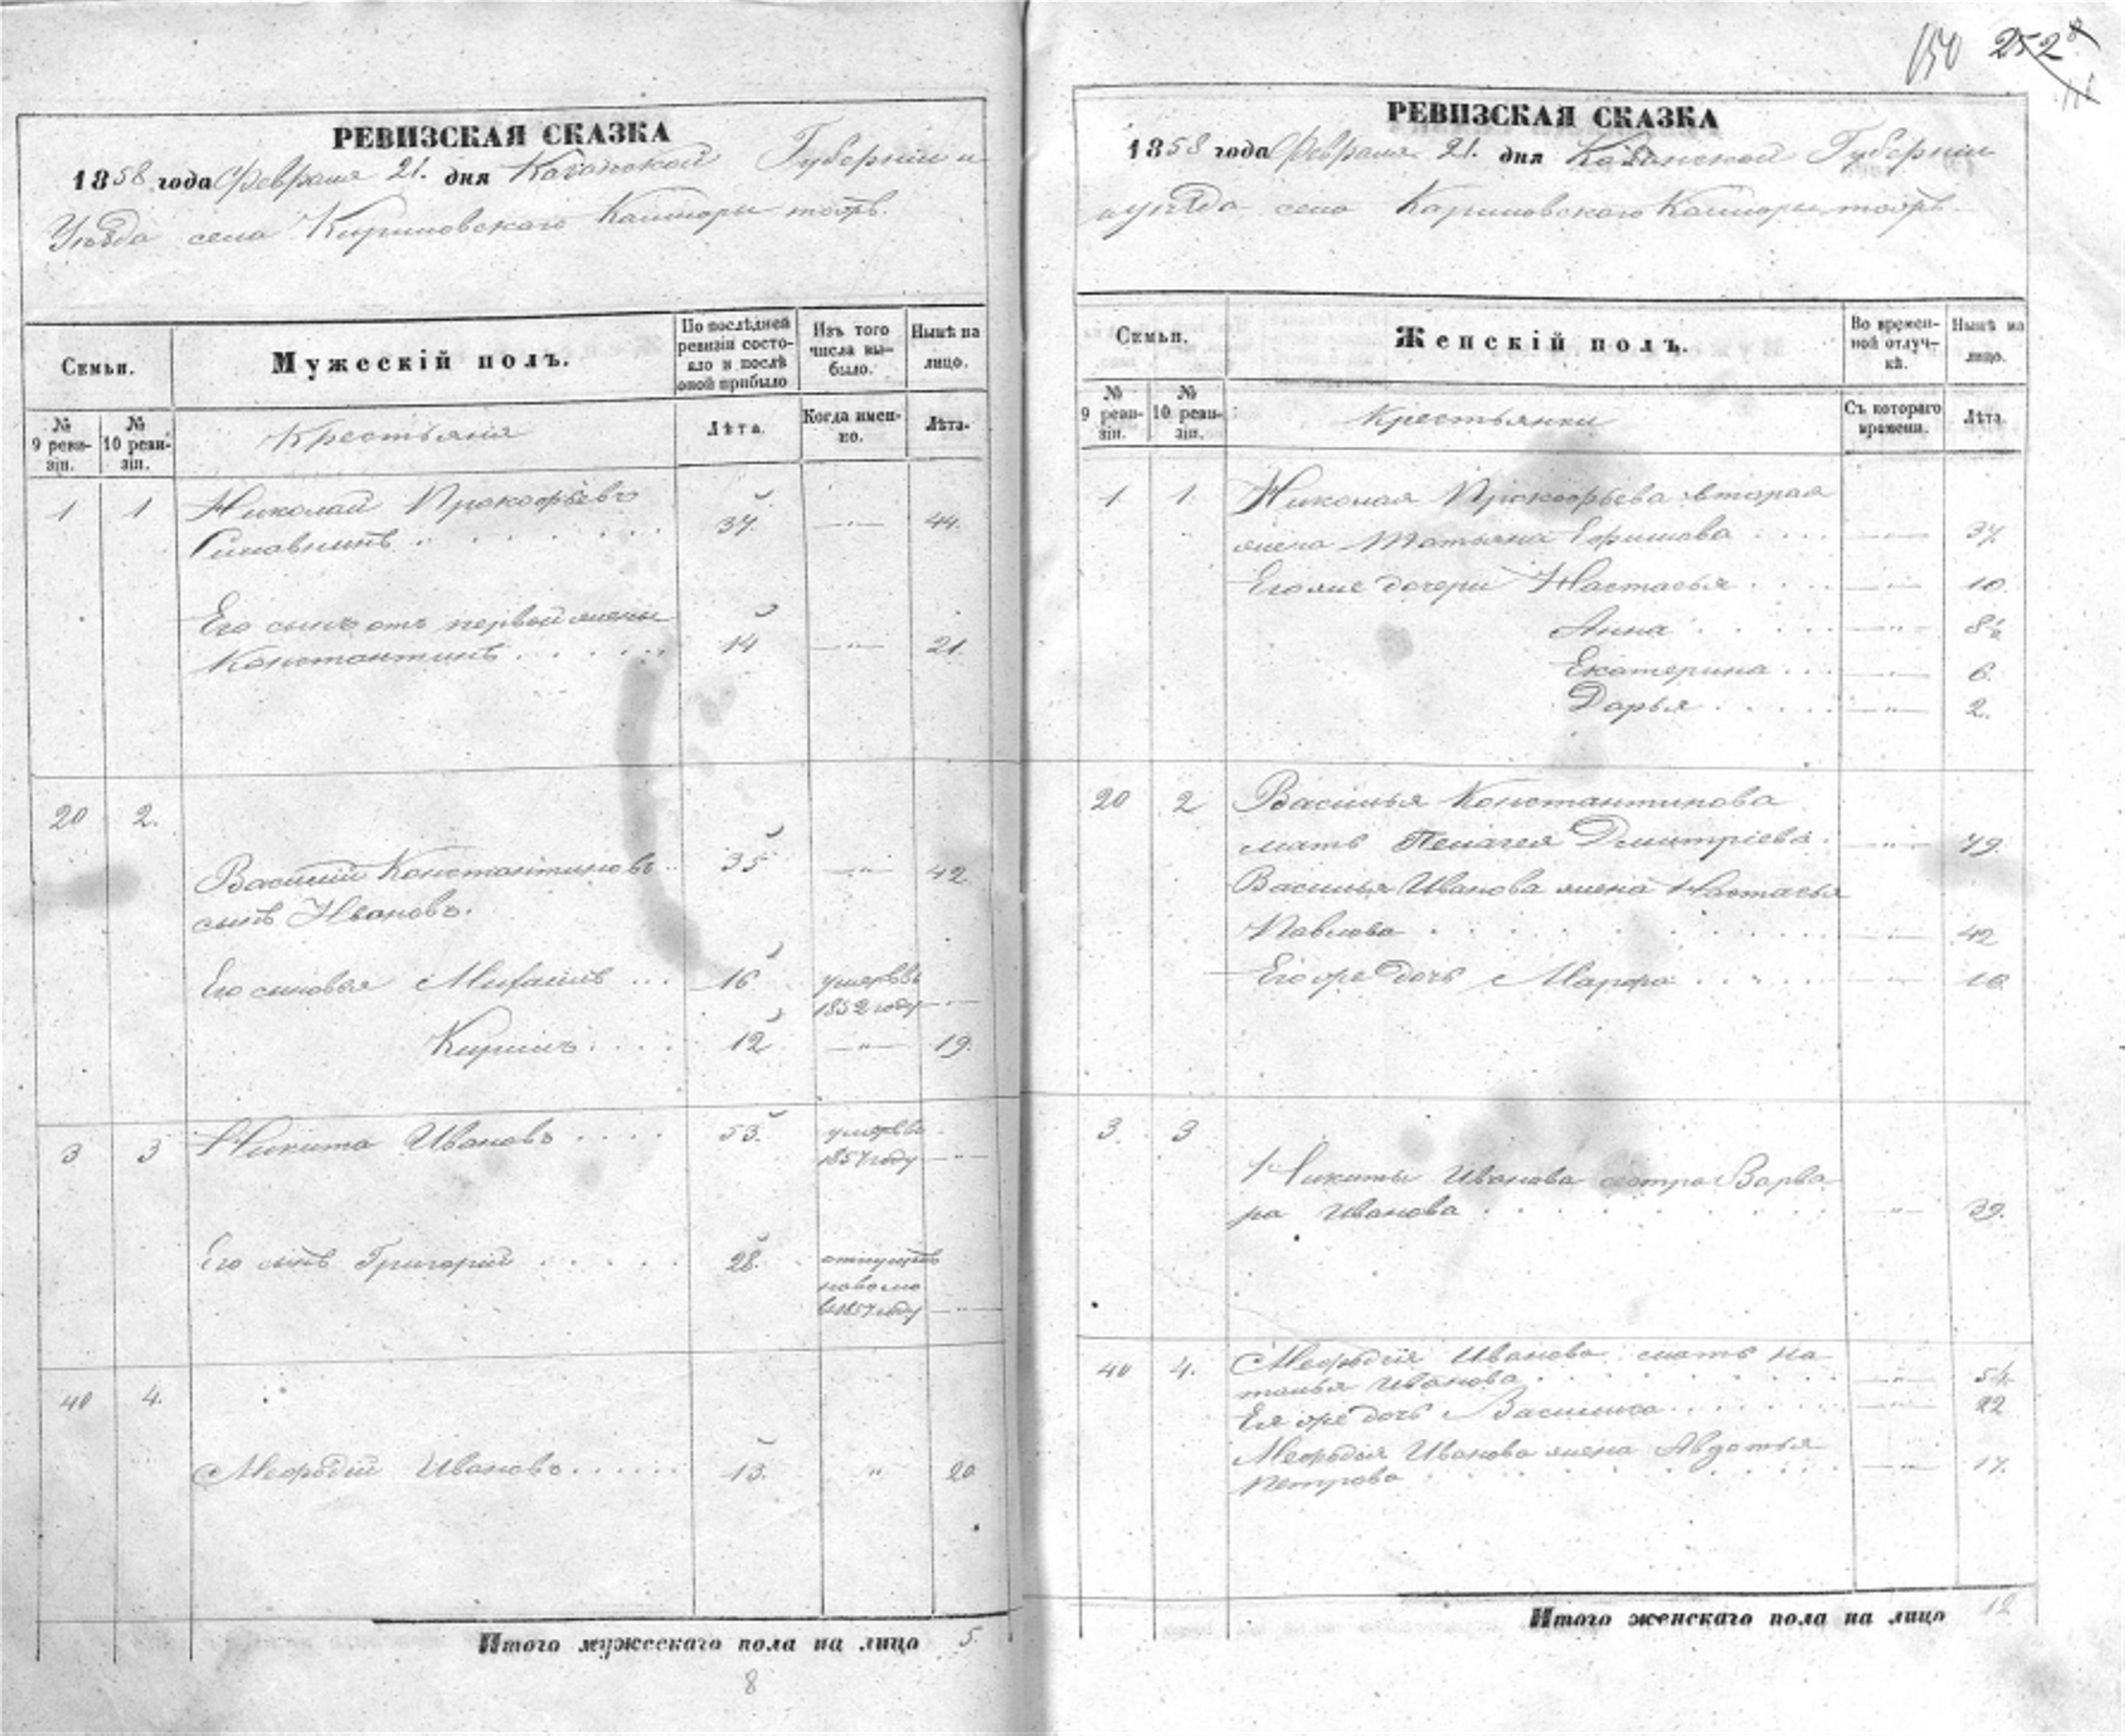 РЕВИЗСКАЯ СКАЗКА
1858 года Февраля 21. дня Казанской Губерніи и
Уѣзда села
Семьи.
Мужескій полъ.
По послѣдней ревизіи состояло и послѣ оной прибыло
Изъ того числа выбыло.
Нынѣ на лицо.
№ 9 ревизіи.
№ 10 ревизіи.
Крестьяне
Лѣта.
Когда именно.
Лѣта.
1 1 Николай Прокофьевъ
37. —"— 44.
Его сынъ отъ первой жены
Константинъ . . . . . 14 —"— 21.
20 2.
Василій Константиновъ .. 35 —"— 42.
сынъ Ивановъ.
Его сыновья Михаилъ ... 16 умеръ въ
1852 году —"—
Кирилъ . . . . 12 —"— 19.
3 3 Никита Ивановъ . . . . 53. умеръ въ
1857 году —"—
Его сынъ Григорій . . . . . 28.
в 1857 году —"—
40 4.
Мефодій Ивановъ . . . . . . 13. " 20
Итого мужескаго пола на лицо 5.
8
150 252
РЕВИЗСКАЯ СКАЗКА
1858 года Февраля 21. дня Казанской Губерніи
и уѣзда села
Семьи.
Женскій полъ.
Во временной отлучкѣ.
Нынѣ на лицо.
№ 9 ревизіи.
№ 10 ревизіи.
Крестьянки
Съ котораго времени.
Лѣта.
1 1. Николая Прокофьева вторая
жена Татьяна Ефимова . . . . —"— 37.
Его же дочери Настасья . . . . —"— 10.
Анна . . . . . —"— 8½
Екатерина . . . —"— 6.
Дарья . . . . . —"— 2.
20 2 Василья Константинова
мать Пелагея Дмитріева . —"— 79.
Василья Иванова жена Настасья
Павлова . . . . . . . . —"— 42
Его же дочь Марфа . . . . . —"— 10.
3. 3
Никиты Иванова сестра Варва
ра Иванова . . . . . . . . —"— 39.
40 4. Мефодія Иванова мать На
талья Иванова . . . . . . . —"— 54.
Ея же дочь Василиса . . . . . . —"— 22
Мефодія Иванова жена Авдотья
Петрова . . . . . . . . —"— 17.
Итого женскаго пола на лицо 12